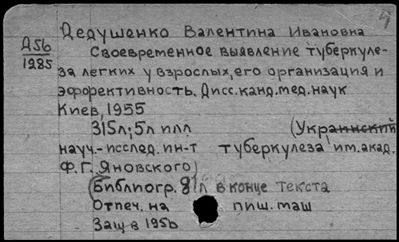 Дедушенко Валентина Ивановна
Д56
1285
Своевременное выявление туберкуле-
за легких у взрослых, его организация и
эффективность. Дисс. канд. мед. наук
Киев, 1955
315л; 5л илл (Украинский
науч.-исслед. ин-т туберкулеза им. акад.
Ф.Г. Яновского)
(Библиогр. 81л в конце текста
Отпеч. на пиш. маш
Защ в 1956